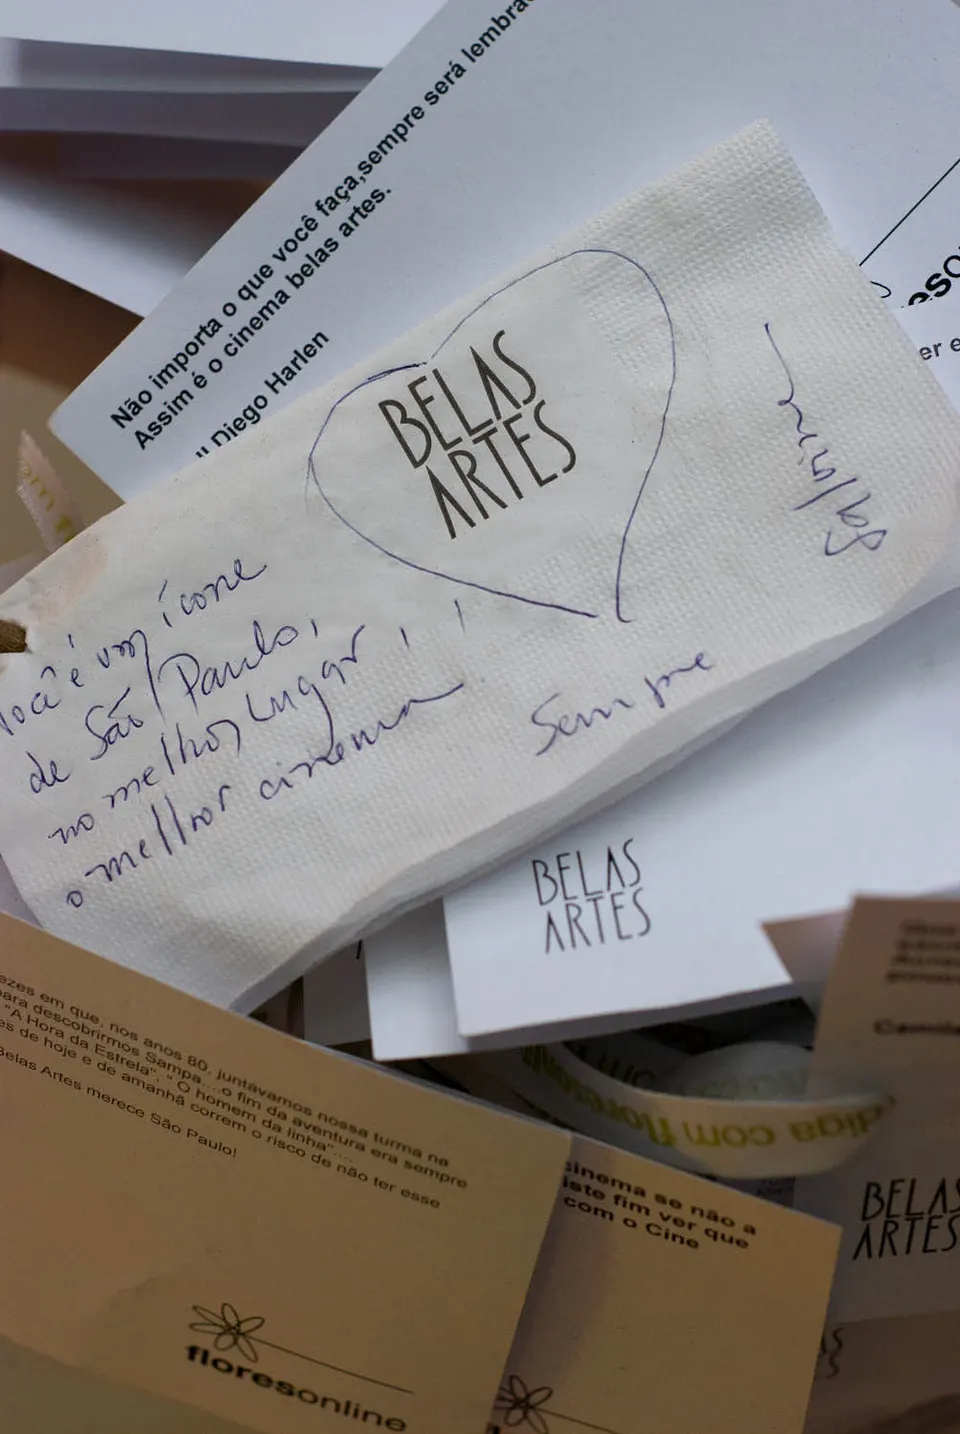 Não importa o que você faça,sempre será lembrad
Assim é o cinema belas artes.
Diego Harlen
er e
BELAS
ARTES
Você é um ícone
de São Paulo,
no melhor Lugar,
o melhor cinema!
Sempre
BELAS
ARTES
ezes em que, nos anos 80, juntávamos nossa turma na
para descobrirmos Sampa....o fim da aventura era sempre
"A Hora da Estrela", "O homem da linha"....
es de hoje e de amanhã correm o risco de não ter esse
Belas Artes merece São Paulo!
floresonline
cinema se não a
iste fim ver que
com o Cine
diga com flores
Camila
BELAS
ARTES